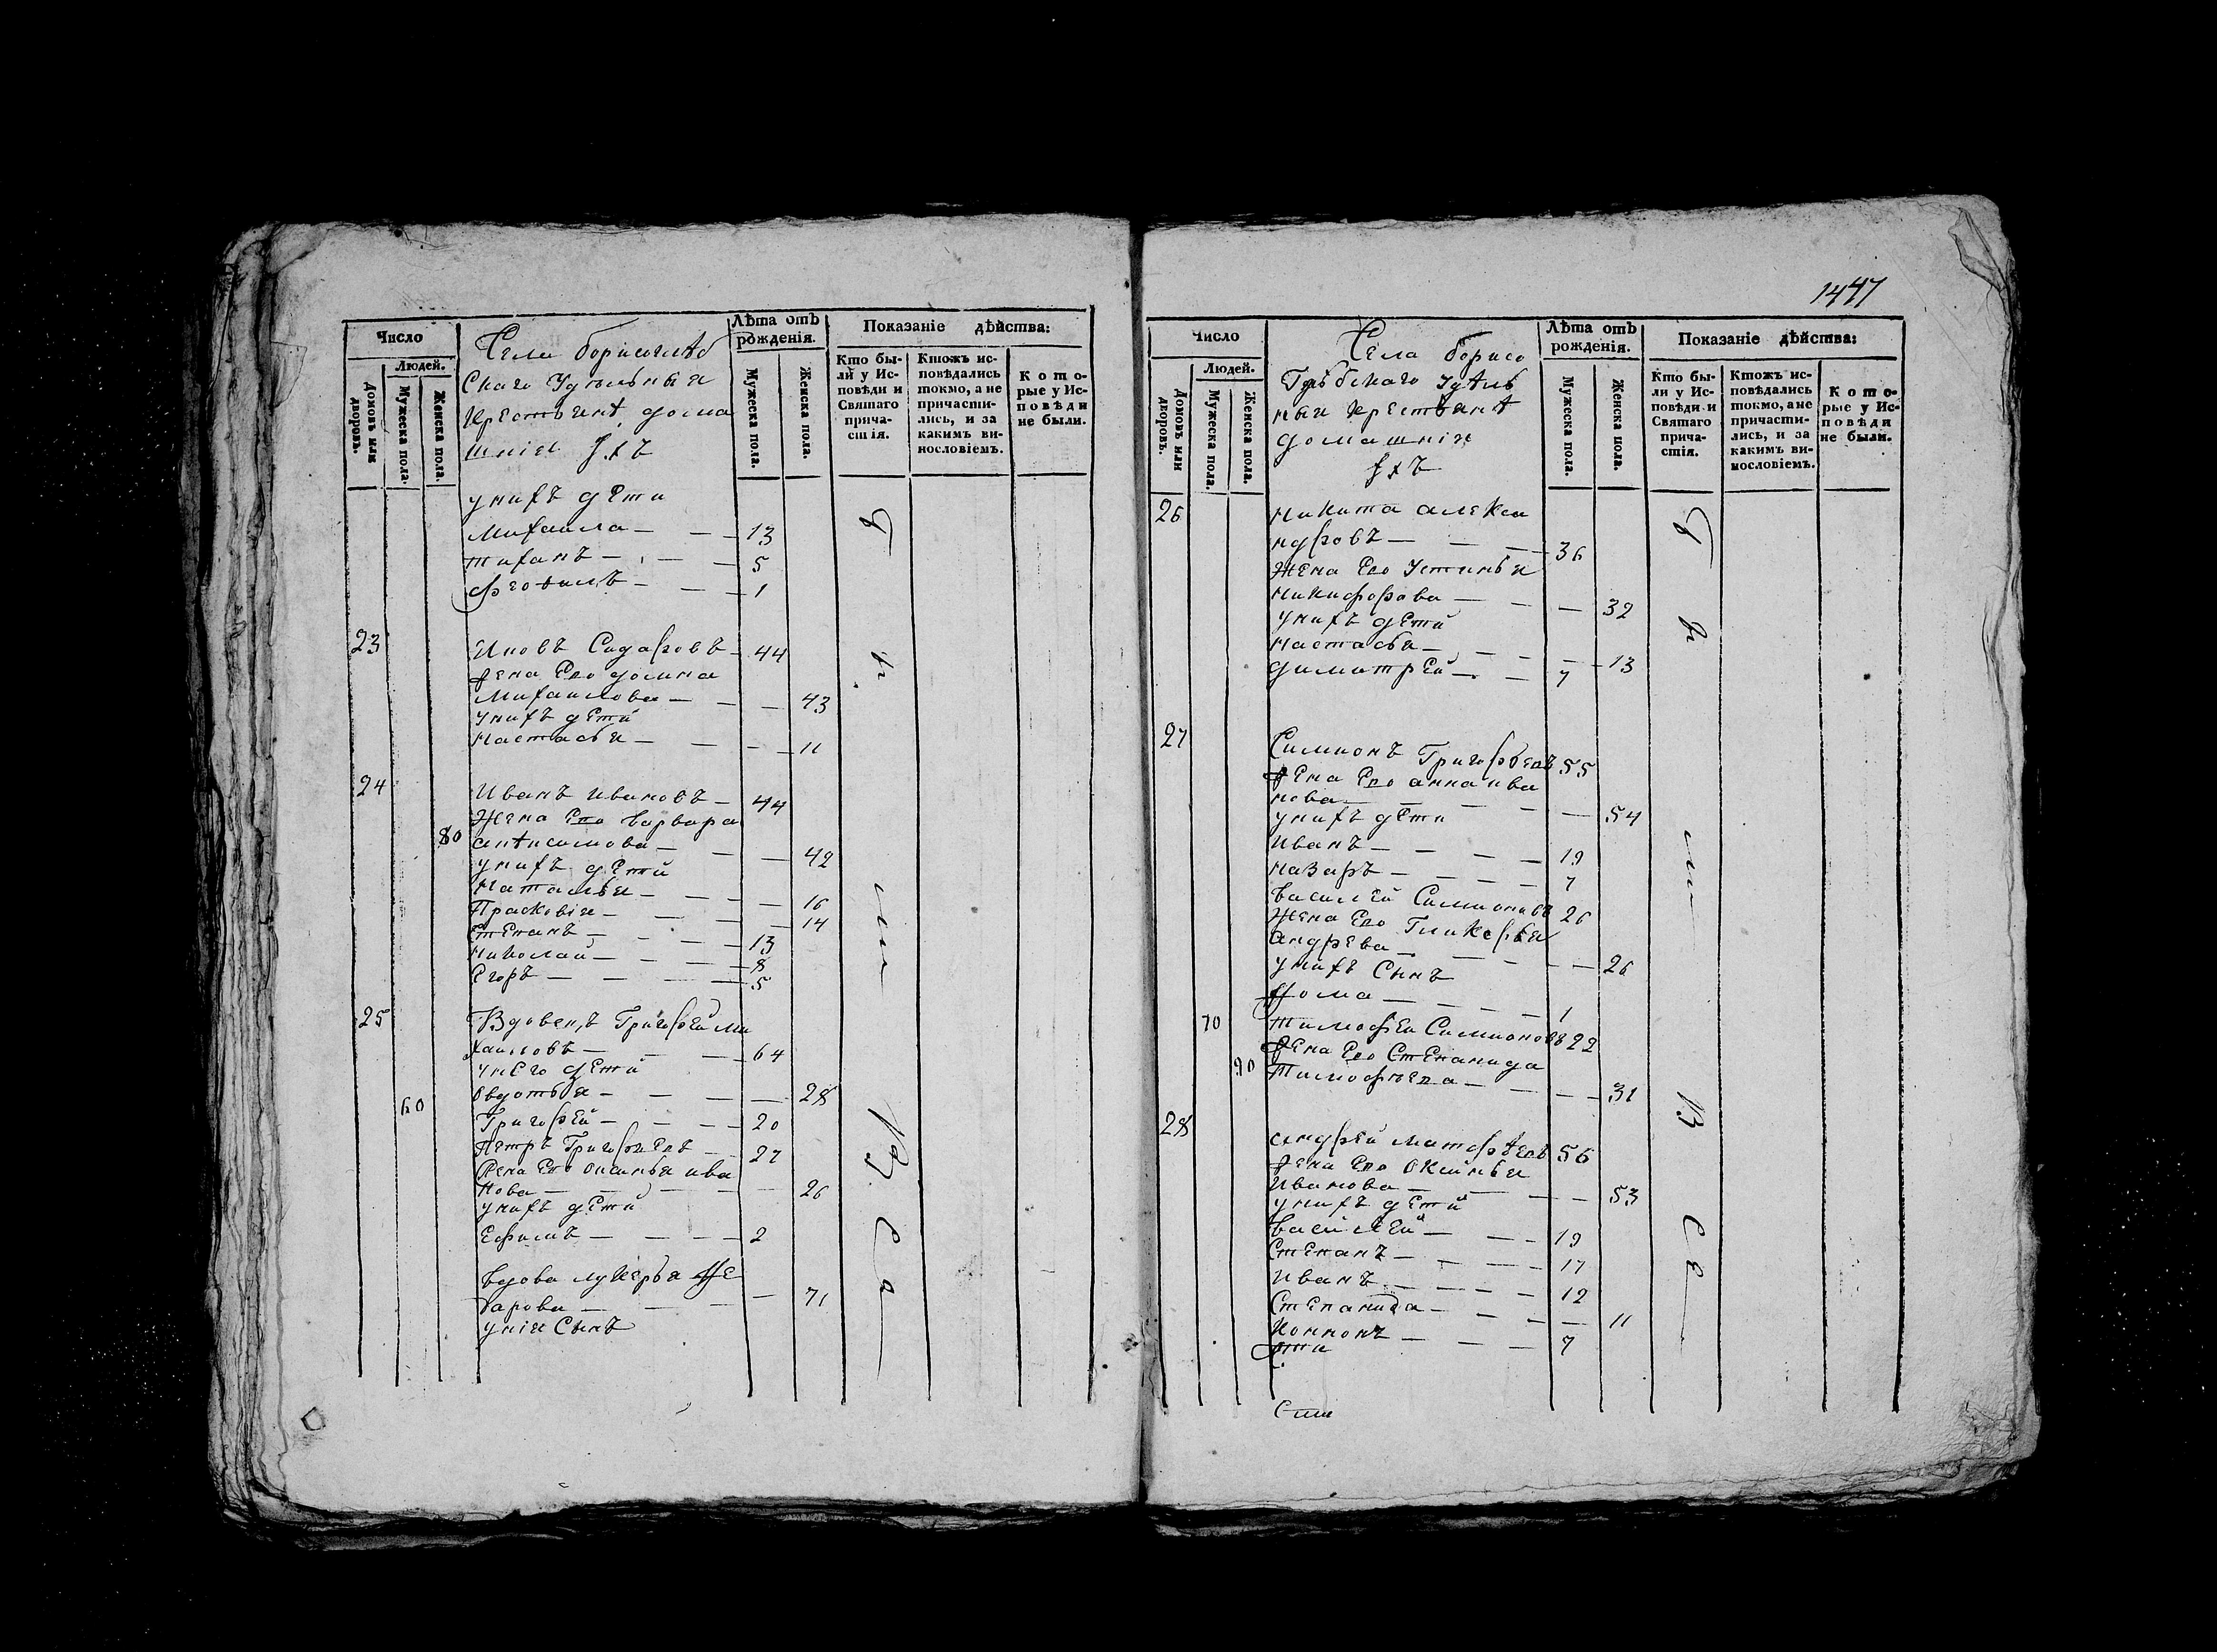 Число
Людей.
Домовъ или дворовъ.
Мужеска пола.
Женска пола.
Села борисоглѣб
Скаго Удѣльныя
Крестьянѣ дома
шнiя
Лѣта отъ рожденiя.
Мужеска пола.
Женска пола.
Показанiе дѣйства:
Кто бы-
ли у Ис-
повѣди и
Святаго
прича-
стiя.
Ктожъ ис-
повѣдались
токмо, а не
причасти-
лись, и за
какимъ ви-
нословiемъ.
Кото-
рые у Ис-
повѣди
не были.
унихъ дети
Михаила — — — 13
Тиханъ — — — 5
1
23 Иовъ Сидаровъ — 44
Жена Его
Михаилова — — — 43
унихъ дети
Настасья — — — 11
24 Иванъ Ивановъ — 44
Жена Его Варвара
80
42
унихъ дети
Наталья — — — 16
Прасковiя — — — 14
Степанъ — — — 13
Николай — — — 8
Егоръ — — — 5
25 Вдовецъ Григорей Ми
хаиловъ — — — 64
унего дети
Овдотья — — — 28
60 Григорей — — — 20
Петръ Григорьевъ — 27
Жена Его Оксинья ива
нова — — — 26
унихъ дети
Ефимъ — — — 2
Вдова лукерья Фе
дарова — — — 71
унiя Сынъ
1447
Число
Людей.
Домовъ или дворовъ.
Мужеска пола.
Женска пола.
Села борисо
Глѣбскаго Удѣль
ныя крестьянѣ
домашнiя
Лѣта отъ рожденiя.
Мужеска пола.
Женска пола.
Показанiе дѣйства:
Кто бы-
ли у Ис-
повѣди и
Святаго
прича-
стiя.
Ктожъ ис-
повѣдались
токмо, а не
причасти-
лись, и за
какимъ ви-
нословiемъ.
Кото-
рые у Ис-
повѣди
не были.
26 Никита алекса
ндровъ — — — 36
Жена Его Устинья
Никифорава — — — 32
унихъ дети
Настасья — — — 13
Димитрей — — 7
27 Симионъ Григорьевъ 55
Жена Его анна ива
нова — — — 54
унихъ дети
Иванъ — — — 19
Назаръ — — — 7
Василей Симионовъ 26
Жена Его Гликерья
андрева — — — 26
унихъ Сынъ
Фома — — — 1
70 Тимофеи Симионовъ 22
Жена Его Степанида
90 Тимофеева — — — 31
28 андрей Матфѣевъ 56
Жена Его Оксинья
Иванова — — — 53
унихъ дети
Василей — — — 19
Степанъ — — — 17
Иванъ — — — 12
Степанида — — — 11
7